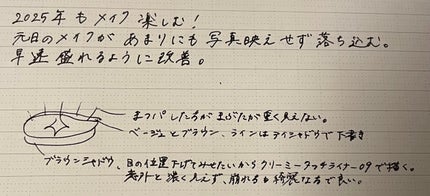 2025年もメイク楽しむ！
元日のメイクがあまりにも写真映えせず落ち込む。
早速盛れるように改善。
まつパした方がまぶたが重く見えない。
ベージュとブラウン、ラインはアイシャドウで下書き
ブラウンシャドウ、目の位置下げてみせたいからクリーミータッチライナー09で描く。
意外と濃く見えず、崩れるも綺麗な方で良い。